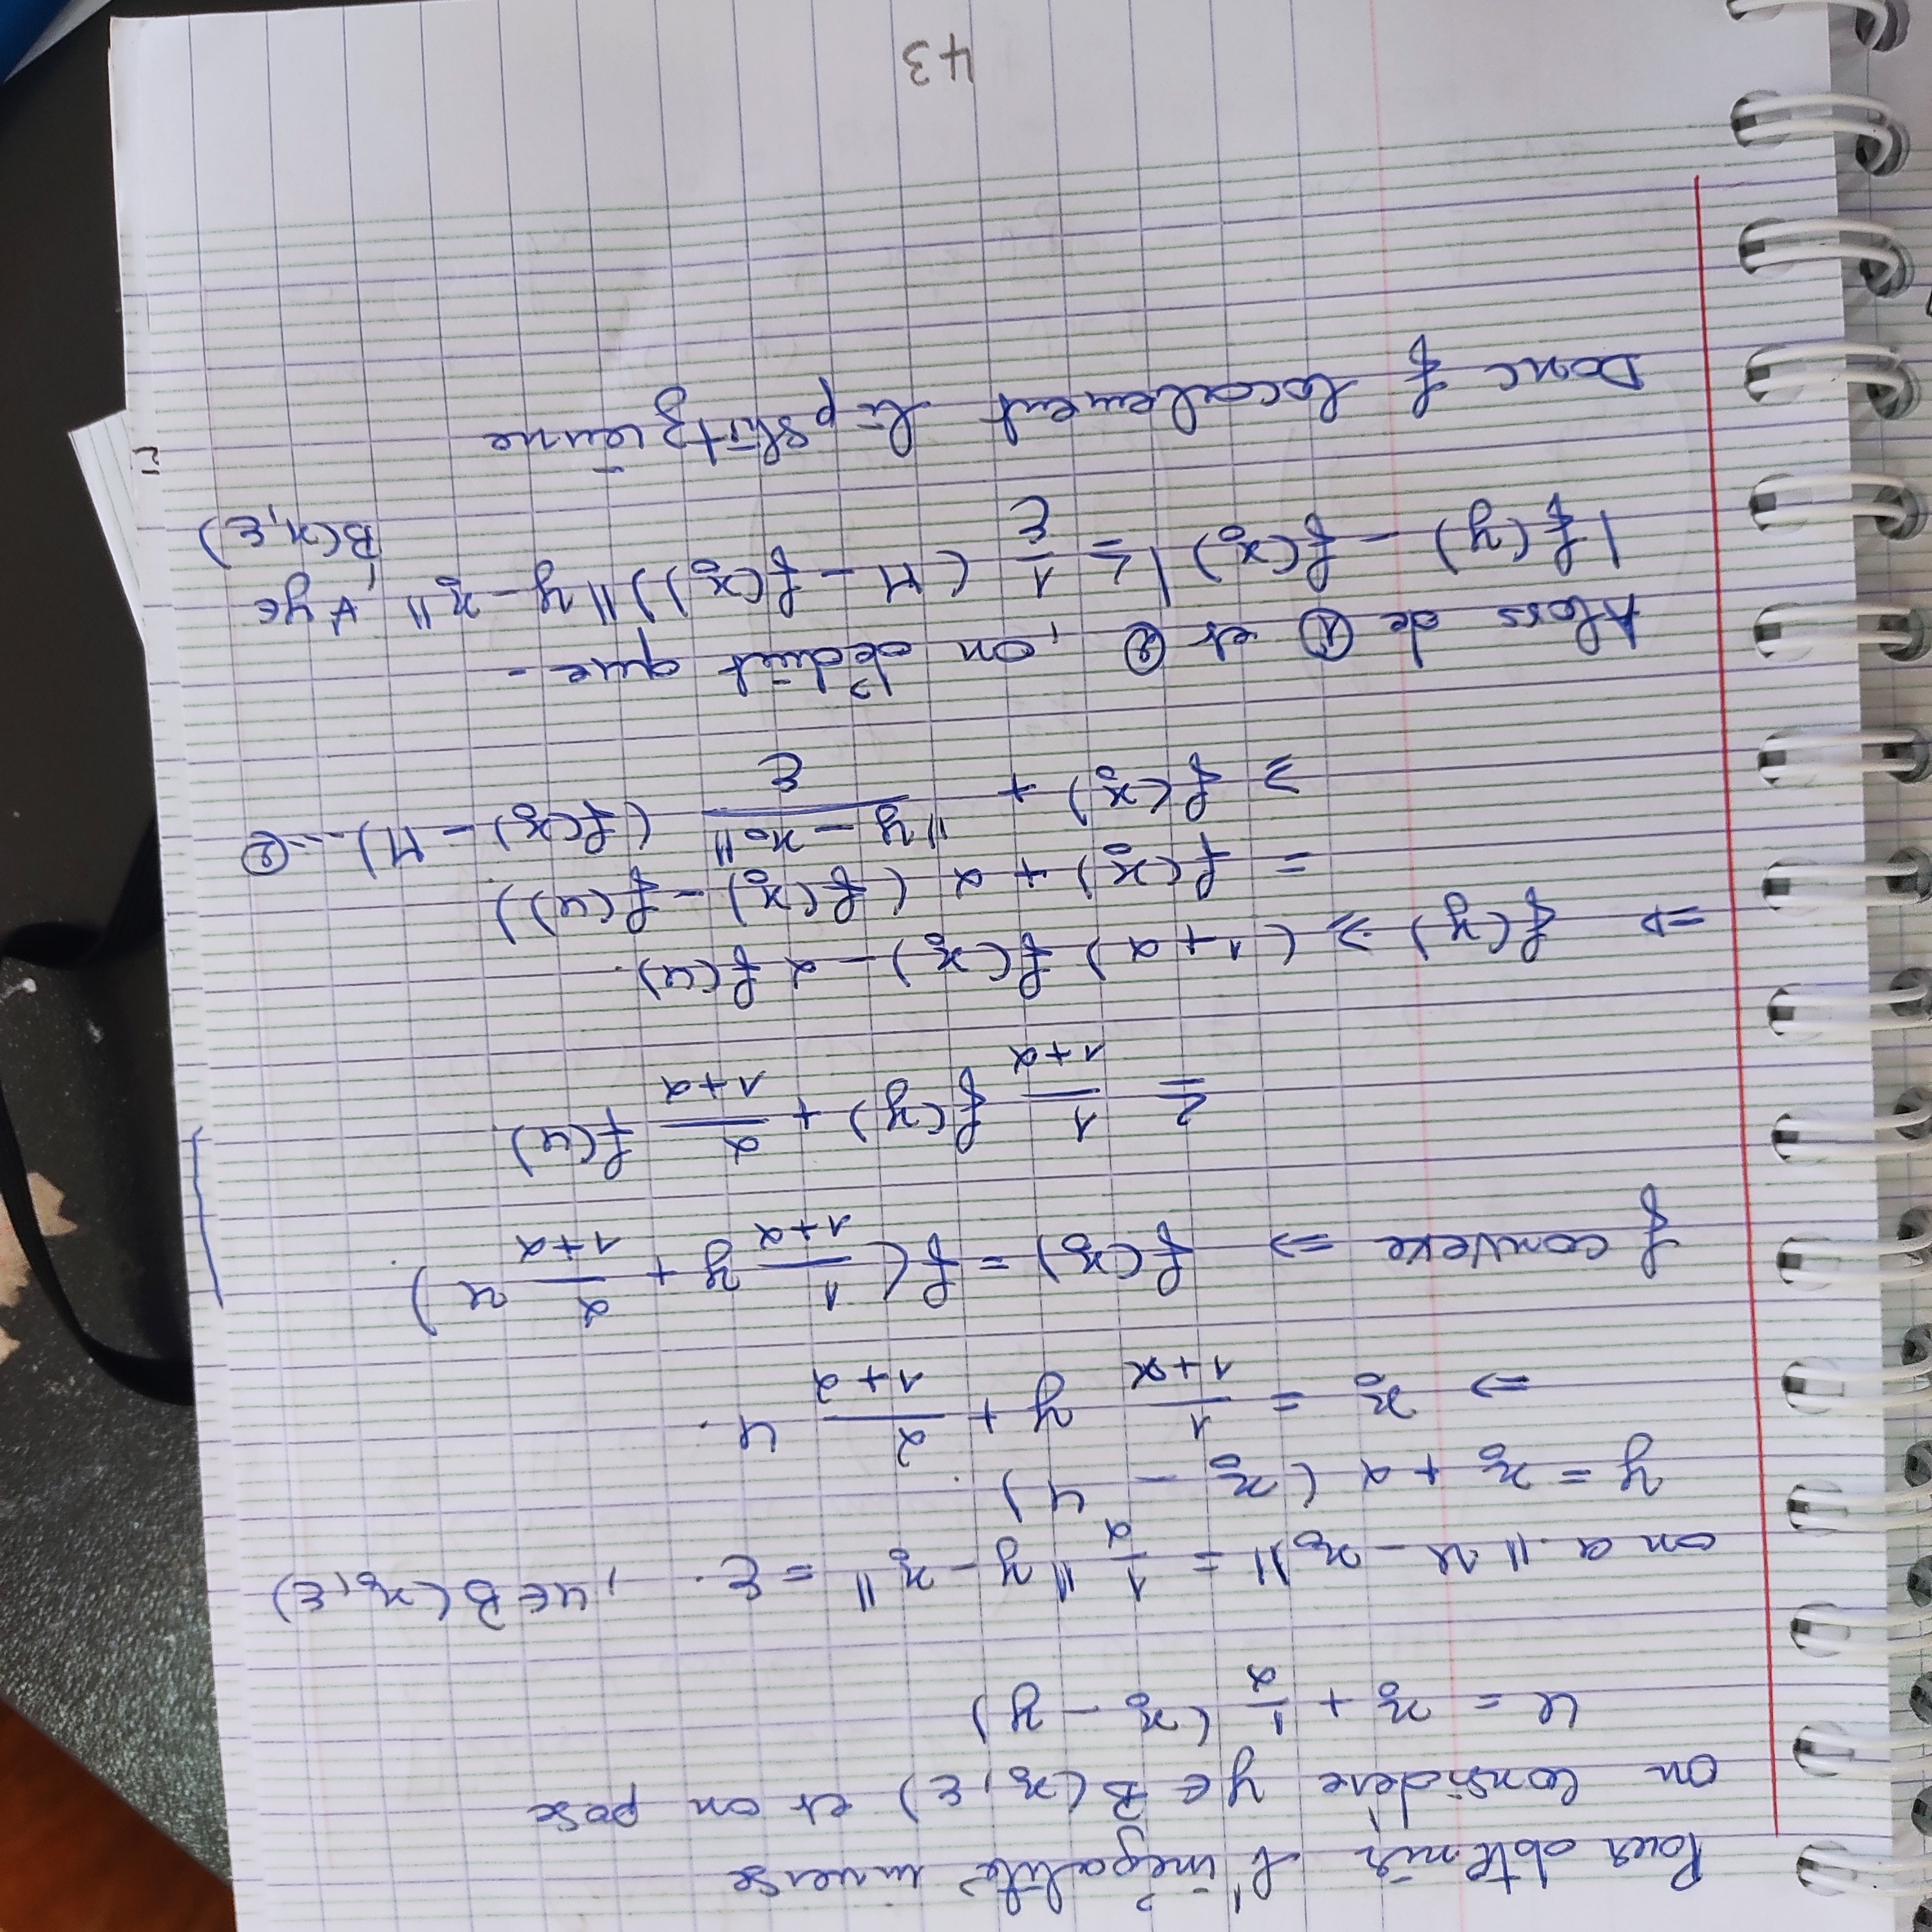 Pour obtenir l'inégalité inverse
on considère y ∈ B(x₀, ε) et on pose
u = x₀ + 1/α (x₀ - y)
on a ‖u - x₀‖ = 1/α ‖y - x₀‖ = ε. , u ∈ B(x₀, ε)
y = x₀ + α (x₀ - u).
⇒ x₀ = 1/(1+α) y + α/(1+α) u.
f convexe ⇒ f(x₀) = f(1/(1+α) y + α/(1+α) u).
≤ 1/(1+α) f(y) + α/(1+α) f(u).
⇒ f(y) ≥ (1+α) f(x₀) - α f(u).
= f(x₀) + α (f(x₀) - f(u))
≥ f(x₀) + ‖y - x₀‖/ε (f(x₀) - M) ... ②
Alors de ① et ②, on déduit que -
|f(y) - f(x₀)| ≤ 1/ε (M - f(x₀)) ‖y - x₀‖, ∀ y ∈
B(x, ε)
Donc f localement lipshitziènne
43